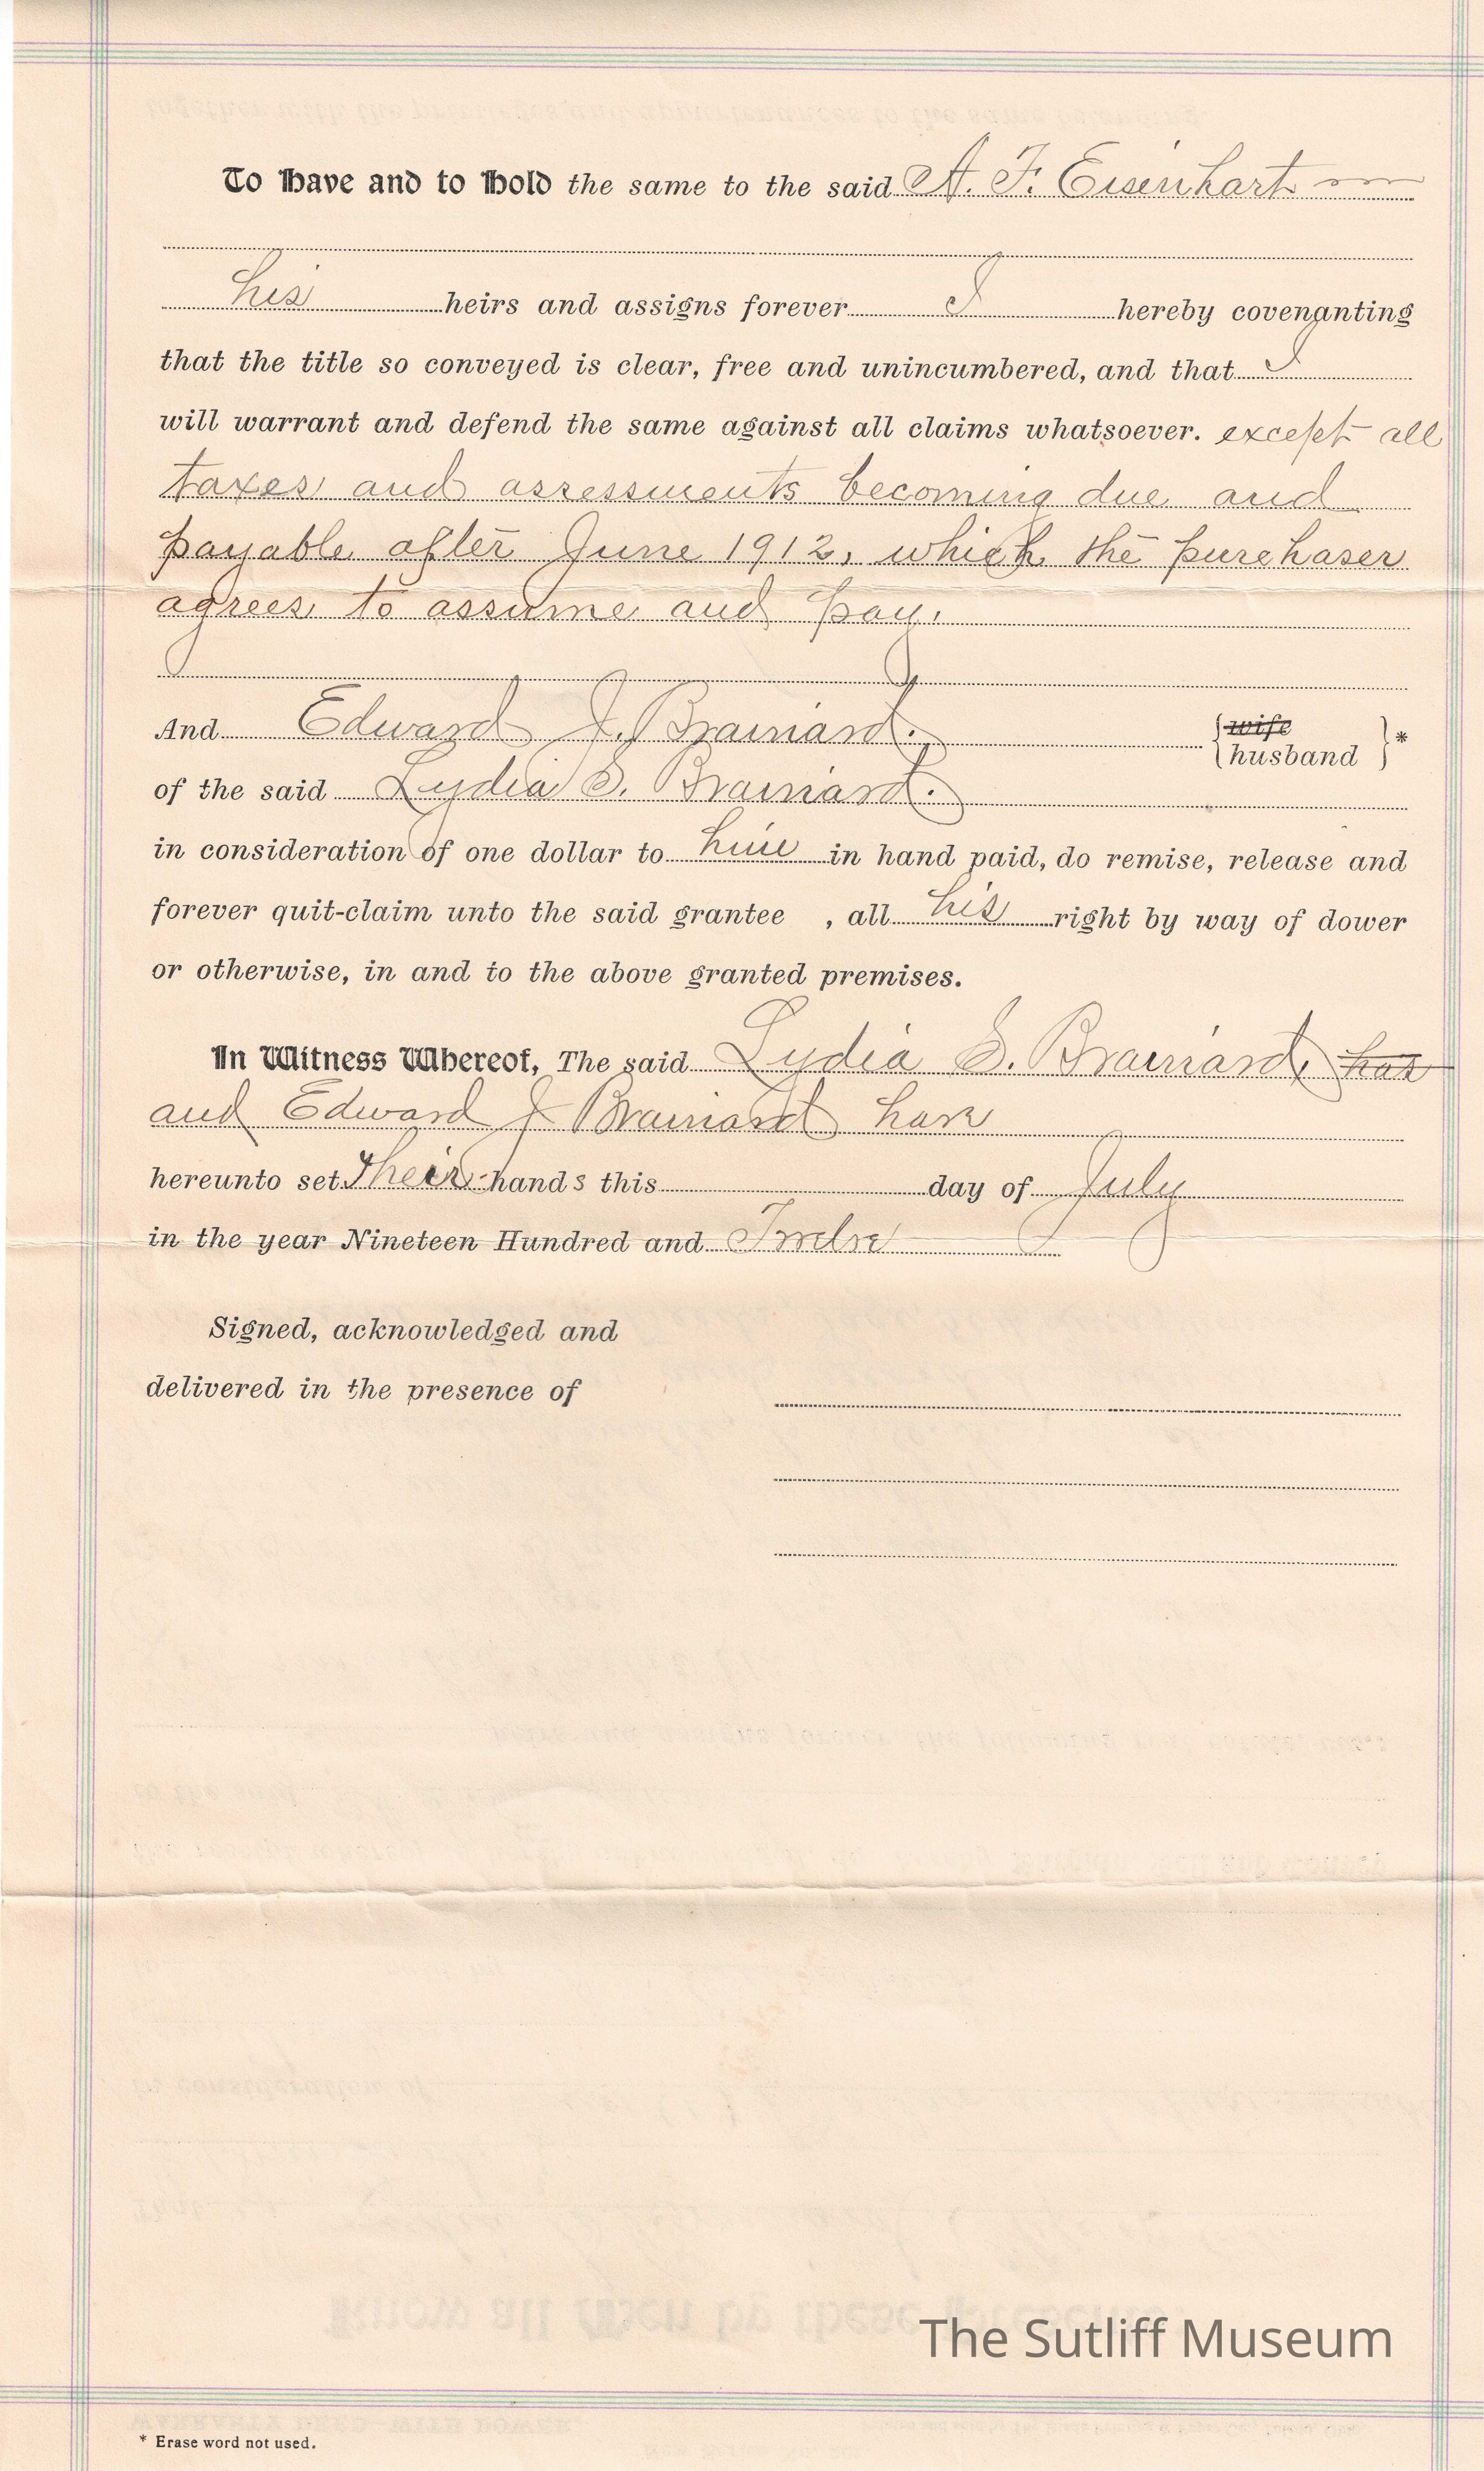 To Have and to Hold the same to the said A. F. Eisenhart
his heirs and assigns forever I hereby covenanting
that the title so conveyed is clear, free and unincumbered, and that I
will warrant and defend the same against all claims whatsoever. except all
taxes and assessments becoming due and
payable after June 1912, which the purchaser
agrees to assume and pay.
And Edward J. Brainard. {wife
husband }*
of the said Lydia S. Brainard.
in consideration of one dollar to him in hand paid, do remise, release and
forever quit-claim unto the said grantee , all his right by way of dower
or otherwise, in and to the above granted premises.
In Witness Whereof, The said Lydia S. Brainard, has
and Edward J Brainard have
hereunto set Their hands this day of July
in the year Nineteen Hundred and Twelve
Signed, acknowledged and
delivered in the presence of
The Sutliff Museum
* Erase word not used.